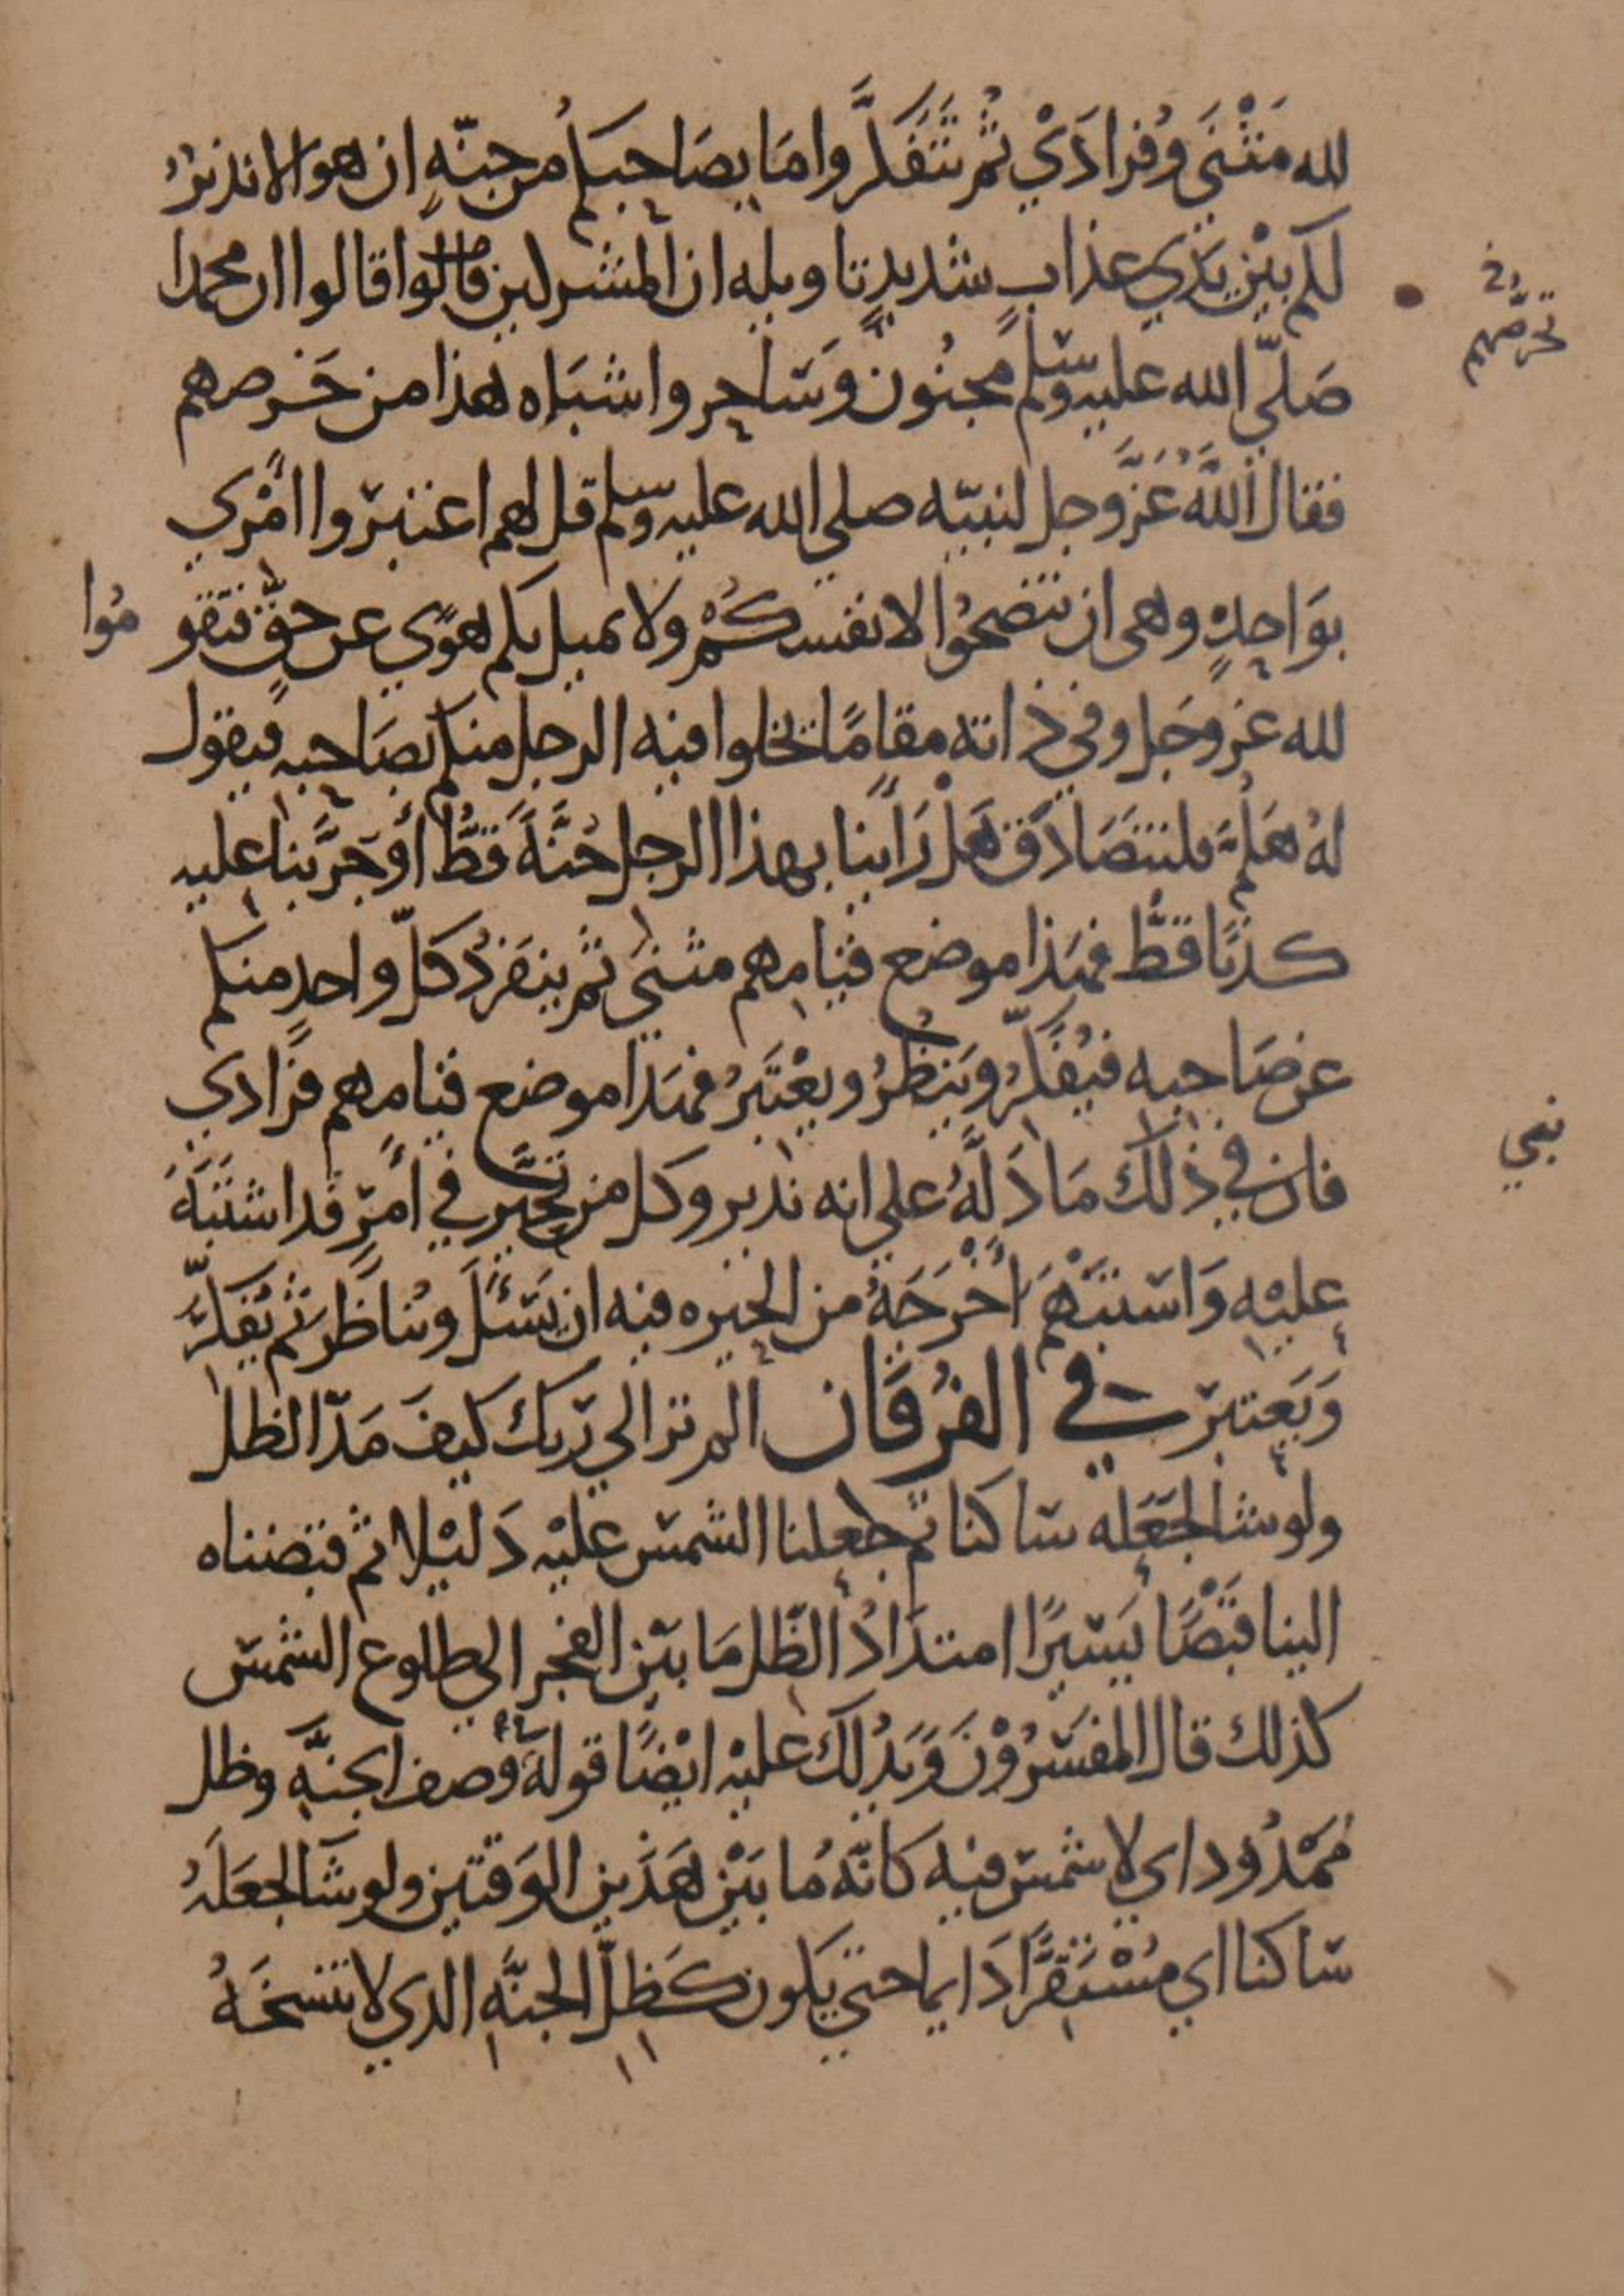 لله مَثْنَى وَفُرَادَيْ ثُمَّ تَتَفَكَّروا مَا بِصَاحِبِكُم من جِنَّةٍ ان هو الا نذيرٌ
لكم بَيْنَ يَدَي عذابٍ شديدٍ تاويله ان المشركين قالوا قالوا ان محمدا
صَلّي الله عليه وسَلّم مجنُون وَسَاحِر واشبَاه هذا من خَرصهم
فقال اللهُ عَزَّ وجل لنبيّه صلي الله عليه وسلم قل لهم اعتبرّوا امْري
بوَاحِدةٍ وهى ان تنصحُوا لانفسكُمْ ولا يميل بكم هوًي عن حقٍّ فتقو مُوا
لله عز وجَل وفي ذاته مقامًا يخلوا فيه الرجل منكم بصَاحِبه فيقول
لهُ هَلُمَّ فلنتصَادَق هَلْ رَاينا بهذا الرجل جُنَّةً قَطُّ أوْ جَرَّبنا عليه
كذبًا قطُّ فهَذا موضع قيامِهم مثنَي ثم ينفَردُ كلّ واحدٍ منكم
عن صَاحِبه فيُفَكّرُ وَينظُرُ ويعْتَبرُ فهَذا موضع قيامِهم فرَادي
فان في ذَلك مَا دَلَّهُ علي انه نذير وكل من تحَيَّر في امْرٍ قد اشتَبَهَ
عليْه وَاسْتَبْهَمَ اخْرَجَهُ من الحيره فيه ان يَسْئلَ ويُناظَر ثم يُفَكّرَ
وَيَعتبرَ في الفُرقَان الم تر الي ربك كيفَ مَدّ الظل
ولو شا لجَعَله سَاكنا ثم جعلنا الشمس عليْه دَليْلا ثم قبضناه
الينا قَبْضًا يَسيرًا امتدَادُ الظّل مَا بيْن الفجر الي طلوع الشمس
كذلك قال المفسّرُوْنَ وَيَدُلك عليْه ايْضًا قولهُ في وَصف الجنَّةِ وظل
ممْدُود اي لا شمسَ فيه كانّهُ ما بَيْن هَذَين الوَقتين ولو شَا لجعَلَهُ
سَاكنا اي مُسْتَقِرًّا دَايما حتي يَكون كَظِلّ الجنَّةِ الدي لا تنسخهُ
تخرصهم
نبي